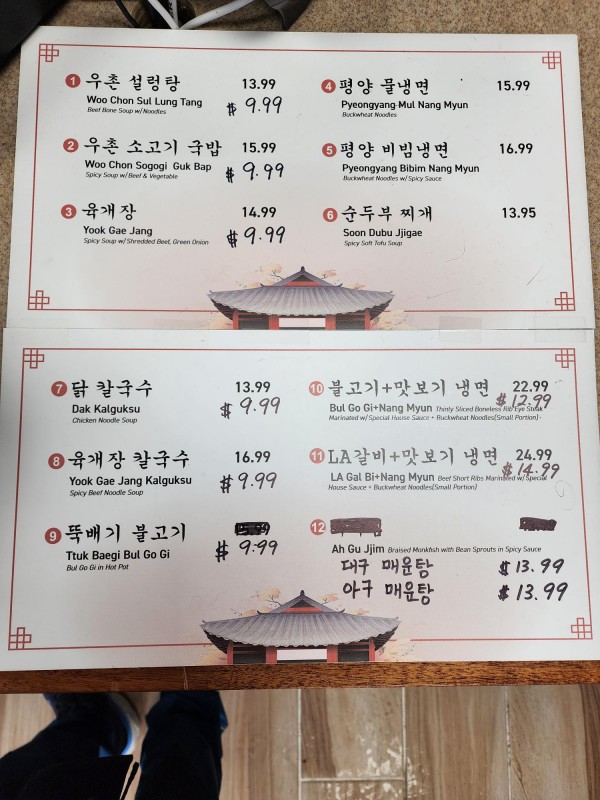 1 우촌 설렁탕 13.99
Woo Chon Sul Lung Tang $ 9.99
Beef Bone Soup w/Noodles
2 우촌 소고기 국밥 15.99
Woo Chon Sogogi Guk Bap $ 9.99
Spicy Soup w/Beef & Vegetable
3 육개장 14.99
Yook Gae Jang $ 9.99
Spicy Soup w/Shredded Beef, Green Onion
4 평양 물냉면 15.99
Pyeongyang Mul Nang Myun
Buckwheat Noodles
5 평양 비빔냉면 16.99
Pyeongyang Bibim Nang Myun
Buckwheat Noodles w/Spicy Sauce
6 순두부 찌개 13.95
Soon Dubu Jjigae
Spicy Soft Tofu Soup
7 닭 칼국수 13.99
Dak Kalguksu $ 9.99
Chicken Noodle Soup
8 육개장 칼국수 16.99
Yook Gae Jang Kalguksu $ 9.99
Spicy Beef Noodle Soup
9 뚝배기 불고기
Ttuk Baegi Bul Go Gi $ 9.99
Bul Go Gi in Hot Pot
10 불고기+맛보기 냉면 22.99
$ 12.99
Bul Go Gi+Nang Myun Thinly Sliced Boneless Rib Eye Steak
Marinated w/Special House Sauce + Buckwheat Noodles(Small Portion)
11 LA갈비+맛보기 냉면 24.99
$ 14.99
LA Gal Bi+Nang Myun Beef Short Ribs Marinated w/ Special
House Sauce + Buckwheat Noodles(Small Portion)
12
Ah Gu Jjim Braised Monkfish with Bean Sprouts in Spicy Sauce
대구 매운탕 $ 13.99
아구 매운탕 $ 13.99